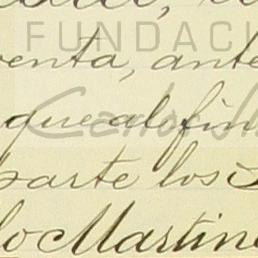 FUNDACI
venta, ante
que al fin
parte los
lo Martin